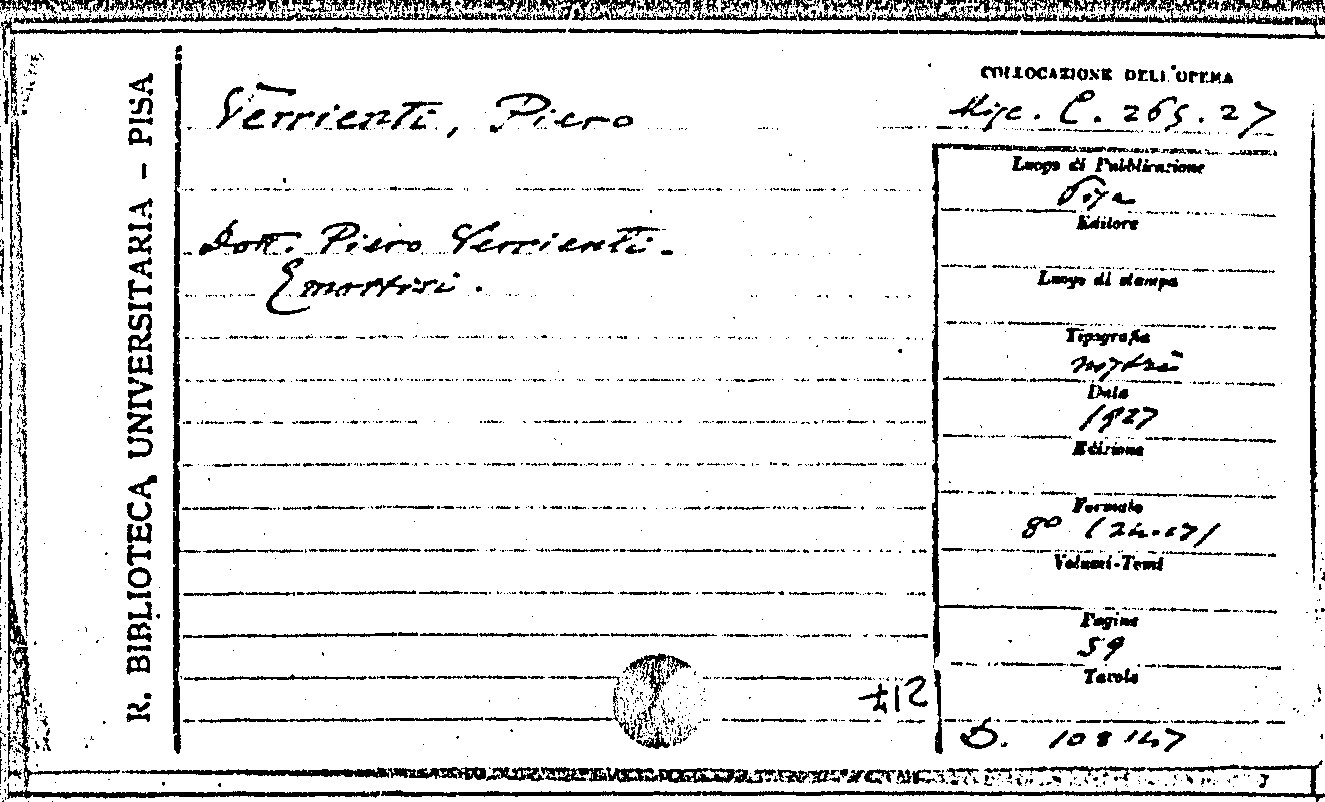 R. BIBLIOTECA UNIVERSITARIA - PISA
Verrienti, Piero
Dott. Piero Verrienti.
Emottisi.
COLLOCAZIONE DELL'OPERA
Misc. C. 265. 27
Luogo di Pubblicazione
Pisa
Editore
Luogo di stampa
Tipografia
Data
1927
Edizione
Formato
8º (24.17)
Volumi-Tomi
Pagine
59
Tavole
D. 108147